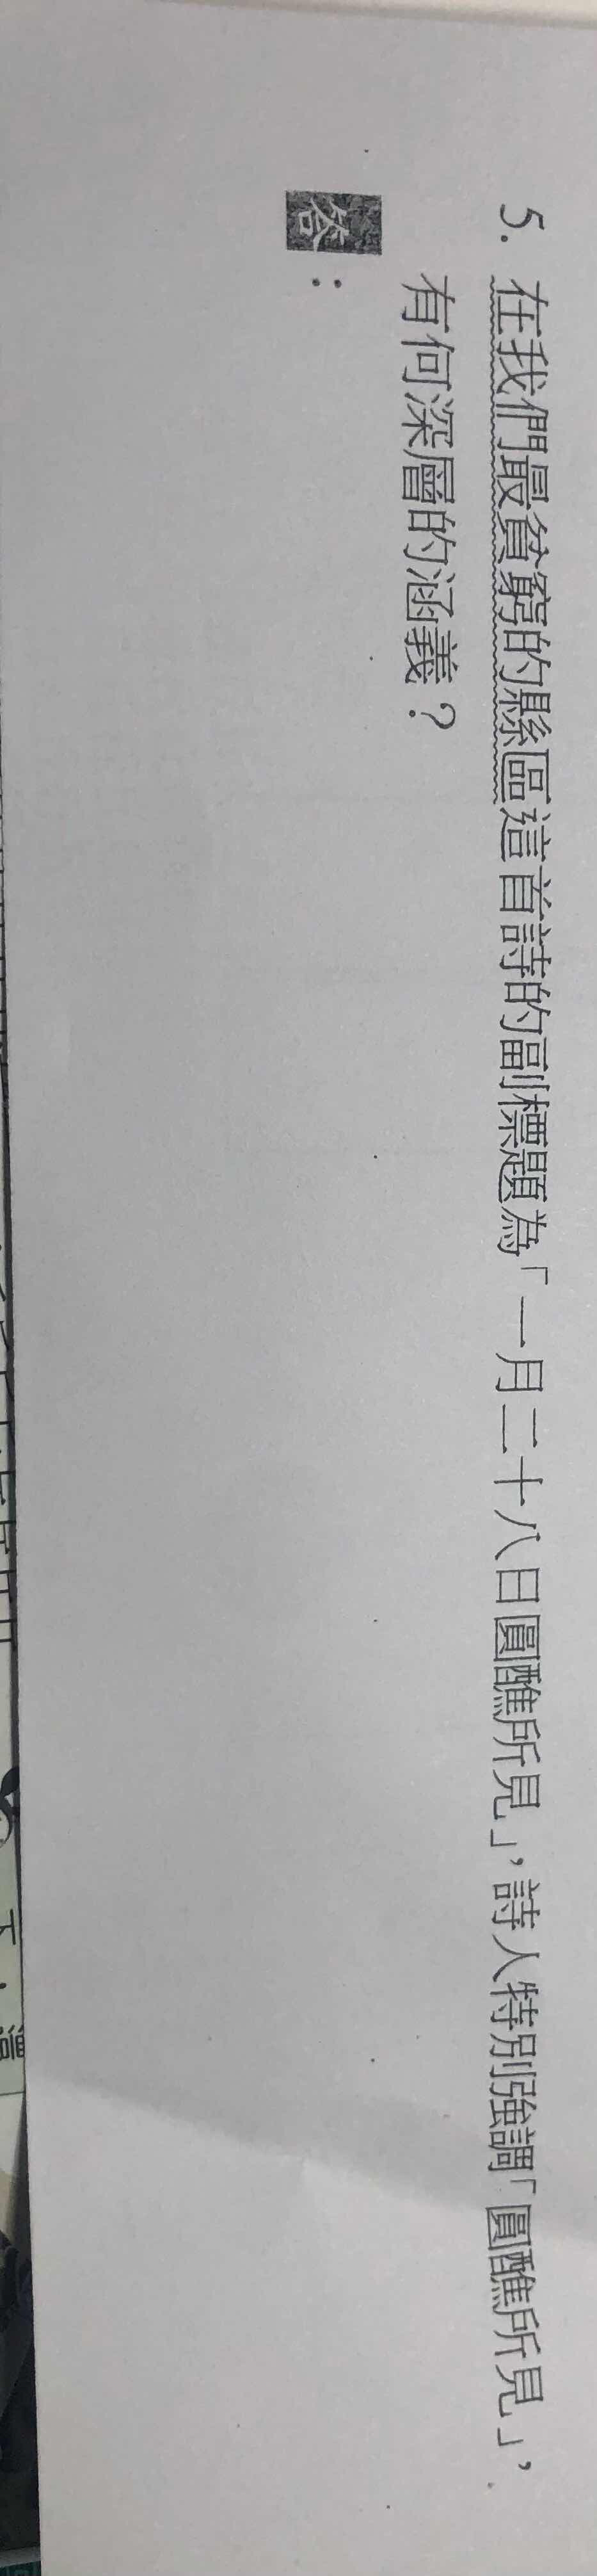 5. 在我們最貧窮的縣區這首詩的副標題為「一月二十八日圓醮所見」，詩人特別強調「圓醮所見」，
有何深層的涵義？
答：